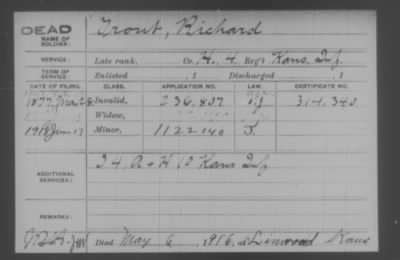 DEAD
NAME OF SOLDIER:
Trout, Richard
SERVICE:
Late rank, Co. H, 4 Reg't Kans. Inf.
TERM OF SERVICE:
Enlisted , 1 Discharged , 1
DATE OF FILING. CLASS. APPLICATION NO. LAW. CERTIFICATE NO.
1877, Mar 28 Invalid, 236,807 314,340
Widow,
1918 Jun 17 Minor, 1122140
ADDITIONAL SERVICES:
A + H 10 Kans Inf
REMARKS:
Died May 6, 1916, at Linwood Kans